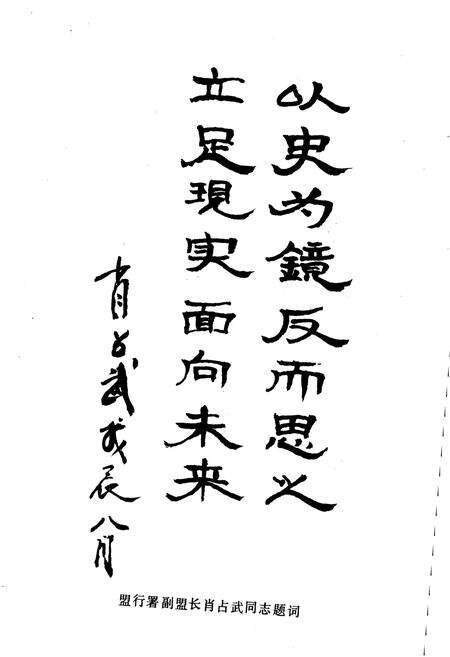 以史为鏡反而思之
立足現实面向未来
肖占武戊辰八月
盟行署副盟长肖占武同志题词